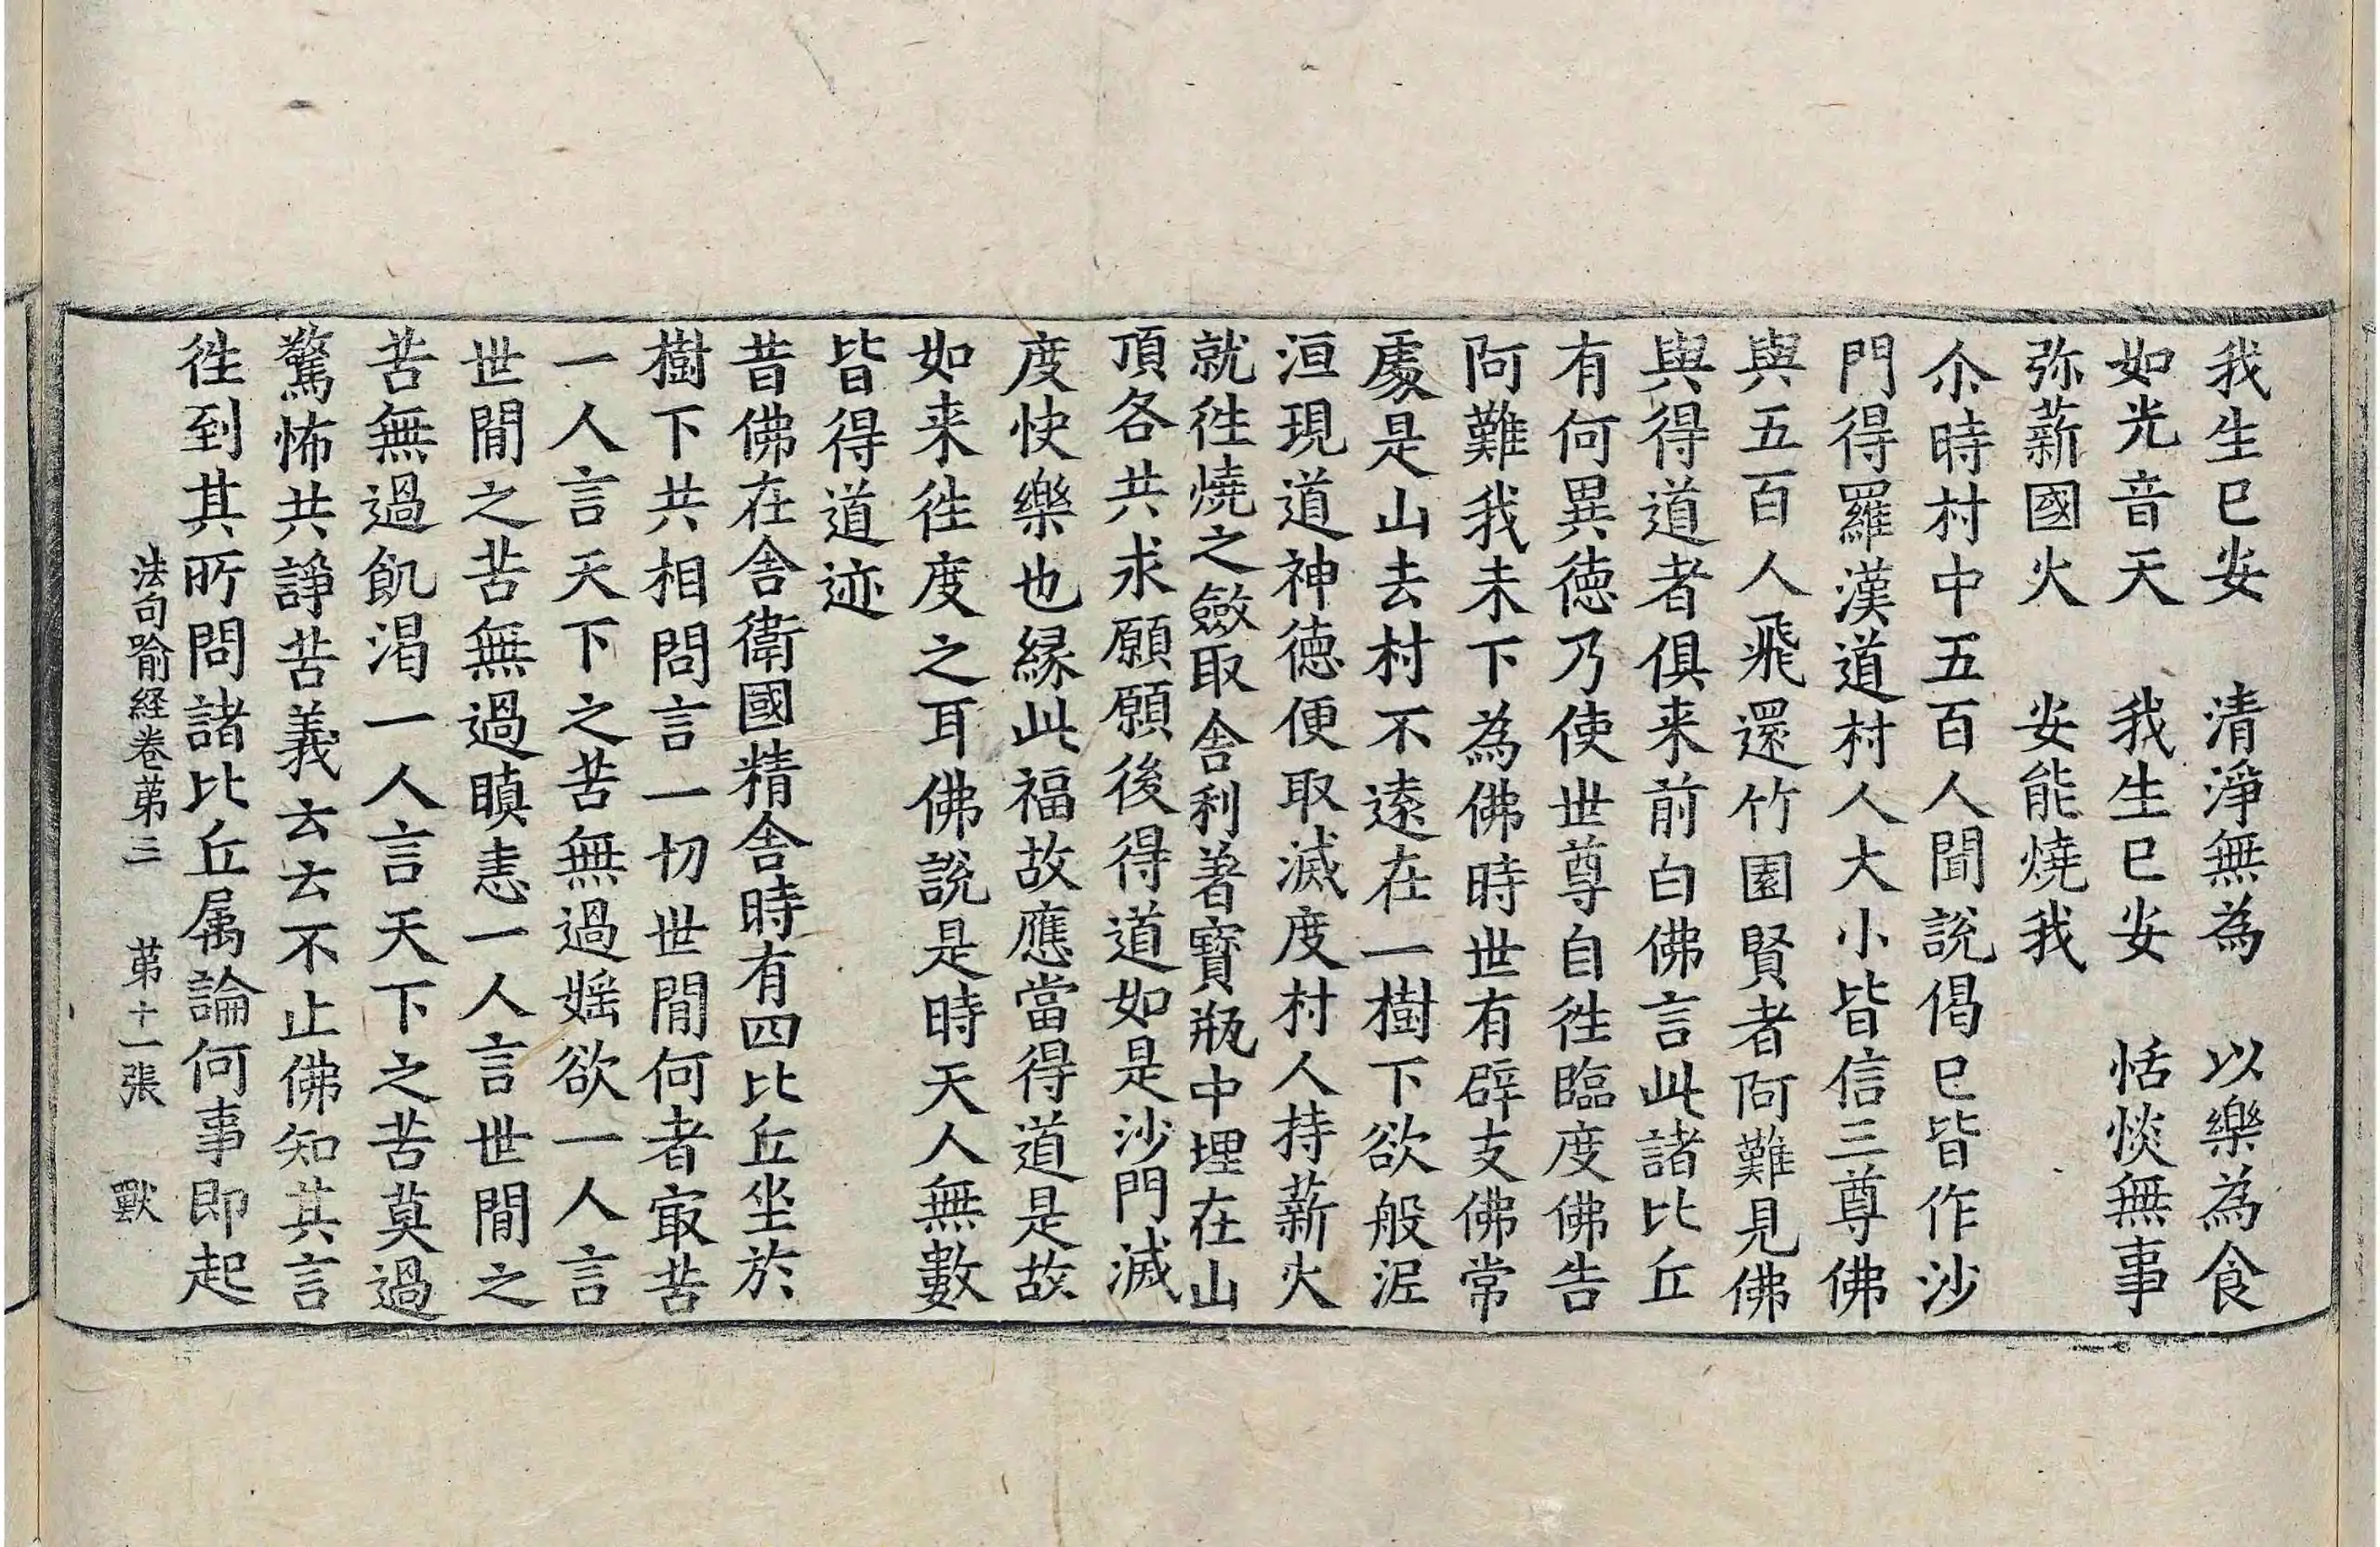 我生已安　清淨無為　以樂為食
如光音天　我生已安　恬惔無事
弥薪國火　安能燒我
尒時村中五百人聞說偈已皆作沙
門得羅漢道村人大小皆信三尊佛
與五百人飛還竹園賢者阿難見佛
與得道者俱来前白佛言此諸比丘
有何異德乃使世尊自徃臨度佛告
阿難我未下為佛時世有辟支佛常
處是山去村不遠在一樹下欲般泥
洹現道神德便取滅度村人持薪火
就徃燒之斂取舍利著寶瓶中埋在山
頂各共求願願後得道如是沙門滅
度快樂也緣此福故應當得道是故
如来徃度之耳佛說是時天人無數
皆得道迹
昔佛在舍衛國精舍時有四比丘坐於
樹下共相問言一切世閒何者㝡苦
一人言天下之苦無過婬欲一人言
世閒之苦無過瞋恚一人言世閒之
苦無過飢渴一人言天下之苦莫過
驚怖共諍苦義云云不止佛知其言
徃到其所問諸比丘属論何事即起
法句喻経卷苐三　苐十一張　獸